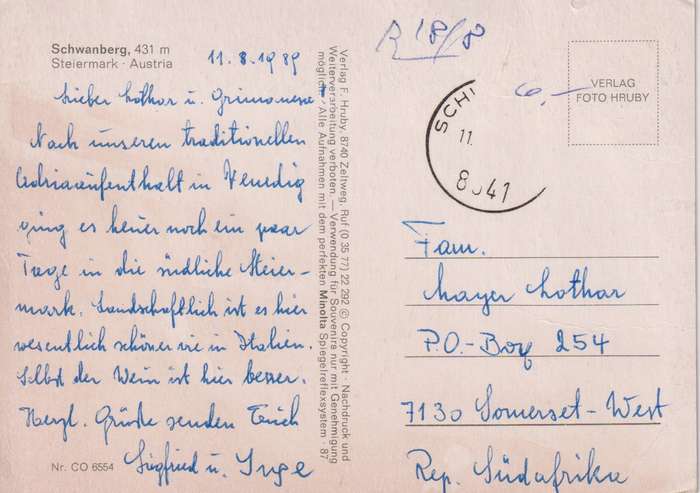 Schwanberg, 431 m
Steiermark · Austria
11.8.1989
Lieber Lothar u. Grimanesa
Nach unseren traditionellen
Adriaaufenthalt in Venedig
ging es heuer noch ein paar
Tage in die südliche Steier-
mark. Landschaftlich ist es hier
wesentlich schöner wie in Italien.
Selbst der Wein ist hier besser.
Herzl. Grüße senden Euch
Siegfried u. Inge
Nr. CO 6554
Verlag F. Hruby, 8740 Zeltweg, Ruf (0 35 77) 22 292 © Copyright · Nachdruck und
Weiterverarbeitung verboten. — Verwendung für Souvenirs nur mit Genehmigung
möglich · Alle Aufnahmen mit dem perfekten Minolta Spiegelreflexsystem · 87
R 18/8
SCHI
11.
8
41
6,—
VERLAG
FOTO HRUBY
Fam.
Mayer Lothar
P.O.-Box 254
7130 Somerset-West
Rep. Südafrika